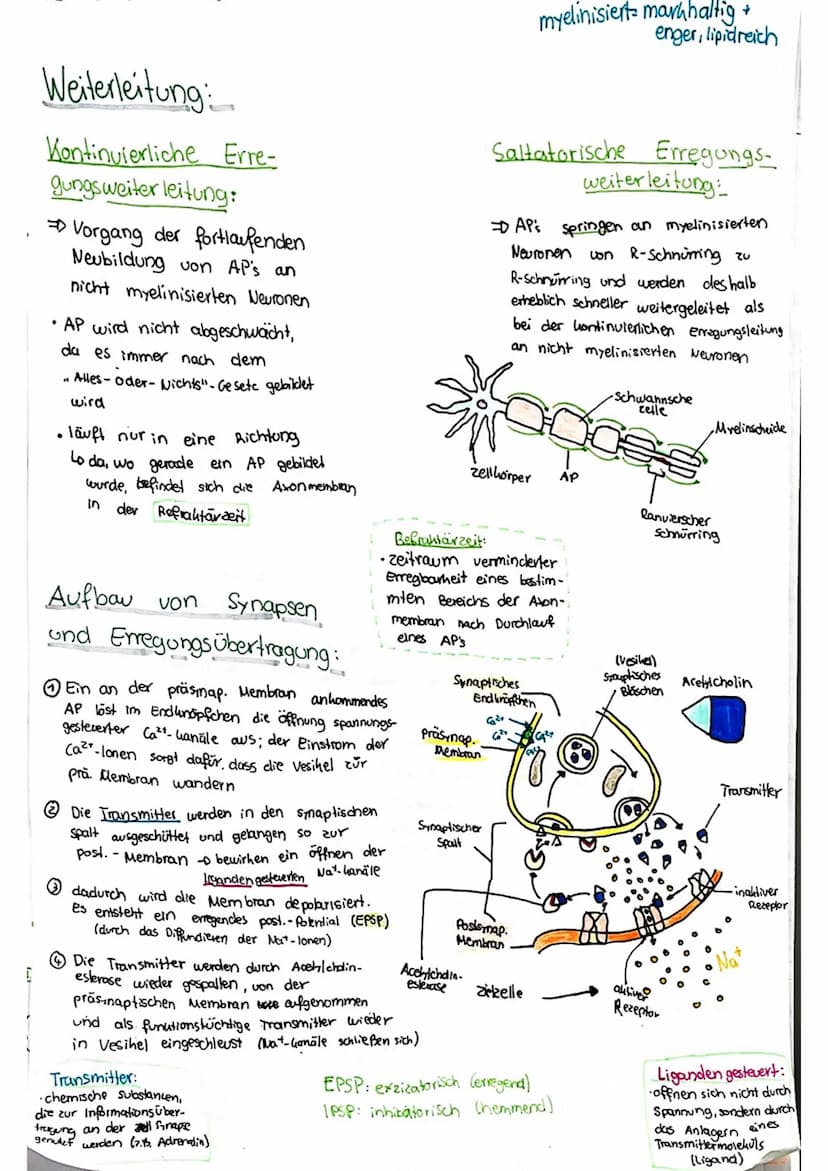 myelinisiert= markhaltig +
enger, lipidreich
Weiterleitung:
Kontinuierliche Erre-
gungsweiterleitung:
⇒ Vorgang der fortlaufenden
Neubildung von AP's an
nicht myelinisierten Neuronen
• AP wird nicht abgeschwächt,
da es immer nach dem
„Alles-oder-Nichts"-Gesetz gebildet
wird
• läuft nur in eine Richtung
↳ da, wo gerade ein AP gebildet
wurde, befindet sich die Axonmembran
in der Refraktärzeit
Saltatorische Erregungs-
weiterleitung:
⇒ AP's springen an myelinisierten
Neuronen von R-Schnürring zu
R-Schnürring und werden deshalb
erheblich schneller weitergeleitet als
bei der kontinuierlichen Erregungsleitung
an nicht myelinisierten Neuronen
Schwannsche
Zelle
Myelinscheide
Zellkörper
AP
Ranvierscher
Schnürring
Refraktärzeit:
• Zeitraum verminderter
Erregbarkeit eines bestim-
mten Bereichs der Axon-
membran nach Durchlauf
eines AP's
Aufbau von Synapsen
und Erregungsübertragung:
① Ein an der präsynap. Membran ankommendes
AP löst im Endknöpfchen die Öffnung spannungs-
gesteuerter Ca²⁺-Kanäle aus; der Einstrom der
Ca²⁺-Ionen sorgt dafür, dass die Vesikel zur
prä. Membran wandern
② Die Transmitter werden in den synaptischen
Spalt ausgeschüttet und gelangen so zur
post.-Membran → bewirken ein öffnen der
ligandengesteuerten Na⁺-Kanäle
③ dadurch wird die Membran depolarisiert.
Es entsteht ein erregendes post.-Potential (EPSP)
(durch das Diffundieren der Na⁺-Ionen)
④ Die Transmitter werden durch Acetylcholin-
esterase wieder gespalten, von der
präsynaptischen Membran aufgenommen
und als funktionstüchtige Transmitter wieder
in Vesikel eingeschleust (Na⁺-Kanäle schließen sich)
Synaptisches
Endknöpfchen
(Vesikel)
Synaptisches
Bläschen
Acetylcholin
Ca²⁺
Ca²⁺
Ca²⁺
Ca²⁺
Präsynap.
Membran
Transmitter
Synaptischer
Spalt
inaktiver
Rezeptor
Postsynap.
Membran
Na⁺
Acetylcholin-
esterase
Zielzelle
aktiver
Rezeptor
Transmitter:
• chemische Substanzen,
die zur Informationsüber-
tragung an der Synapse
genutzt werden (z.B. Adrenalin)
EPSP: exzizatorisch (erregend)
IPSP: inhibitorisch (hemmend)
Liganden gesteuert:
• öffnen sich nicht durch
Spannung, sondern durch
das Anlagern eines
Transmittermoleküls
(Ligand)